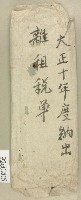 大正十年度納出
雜租税單